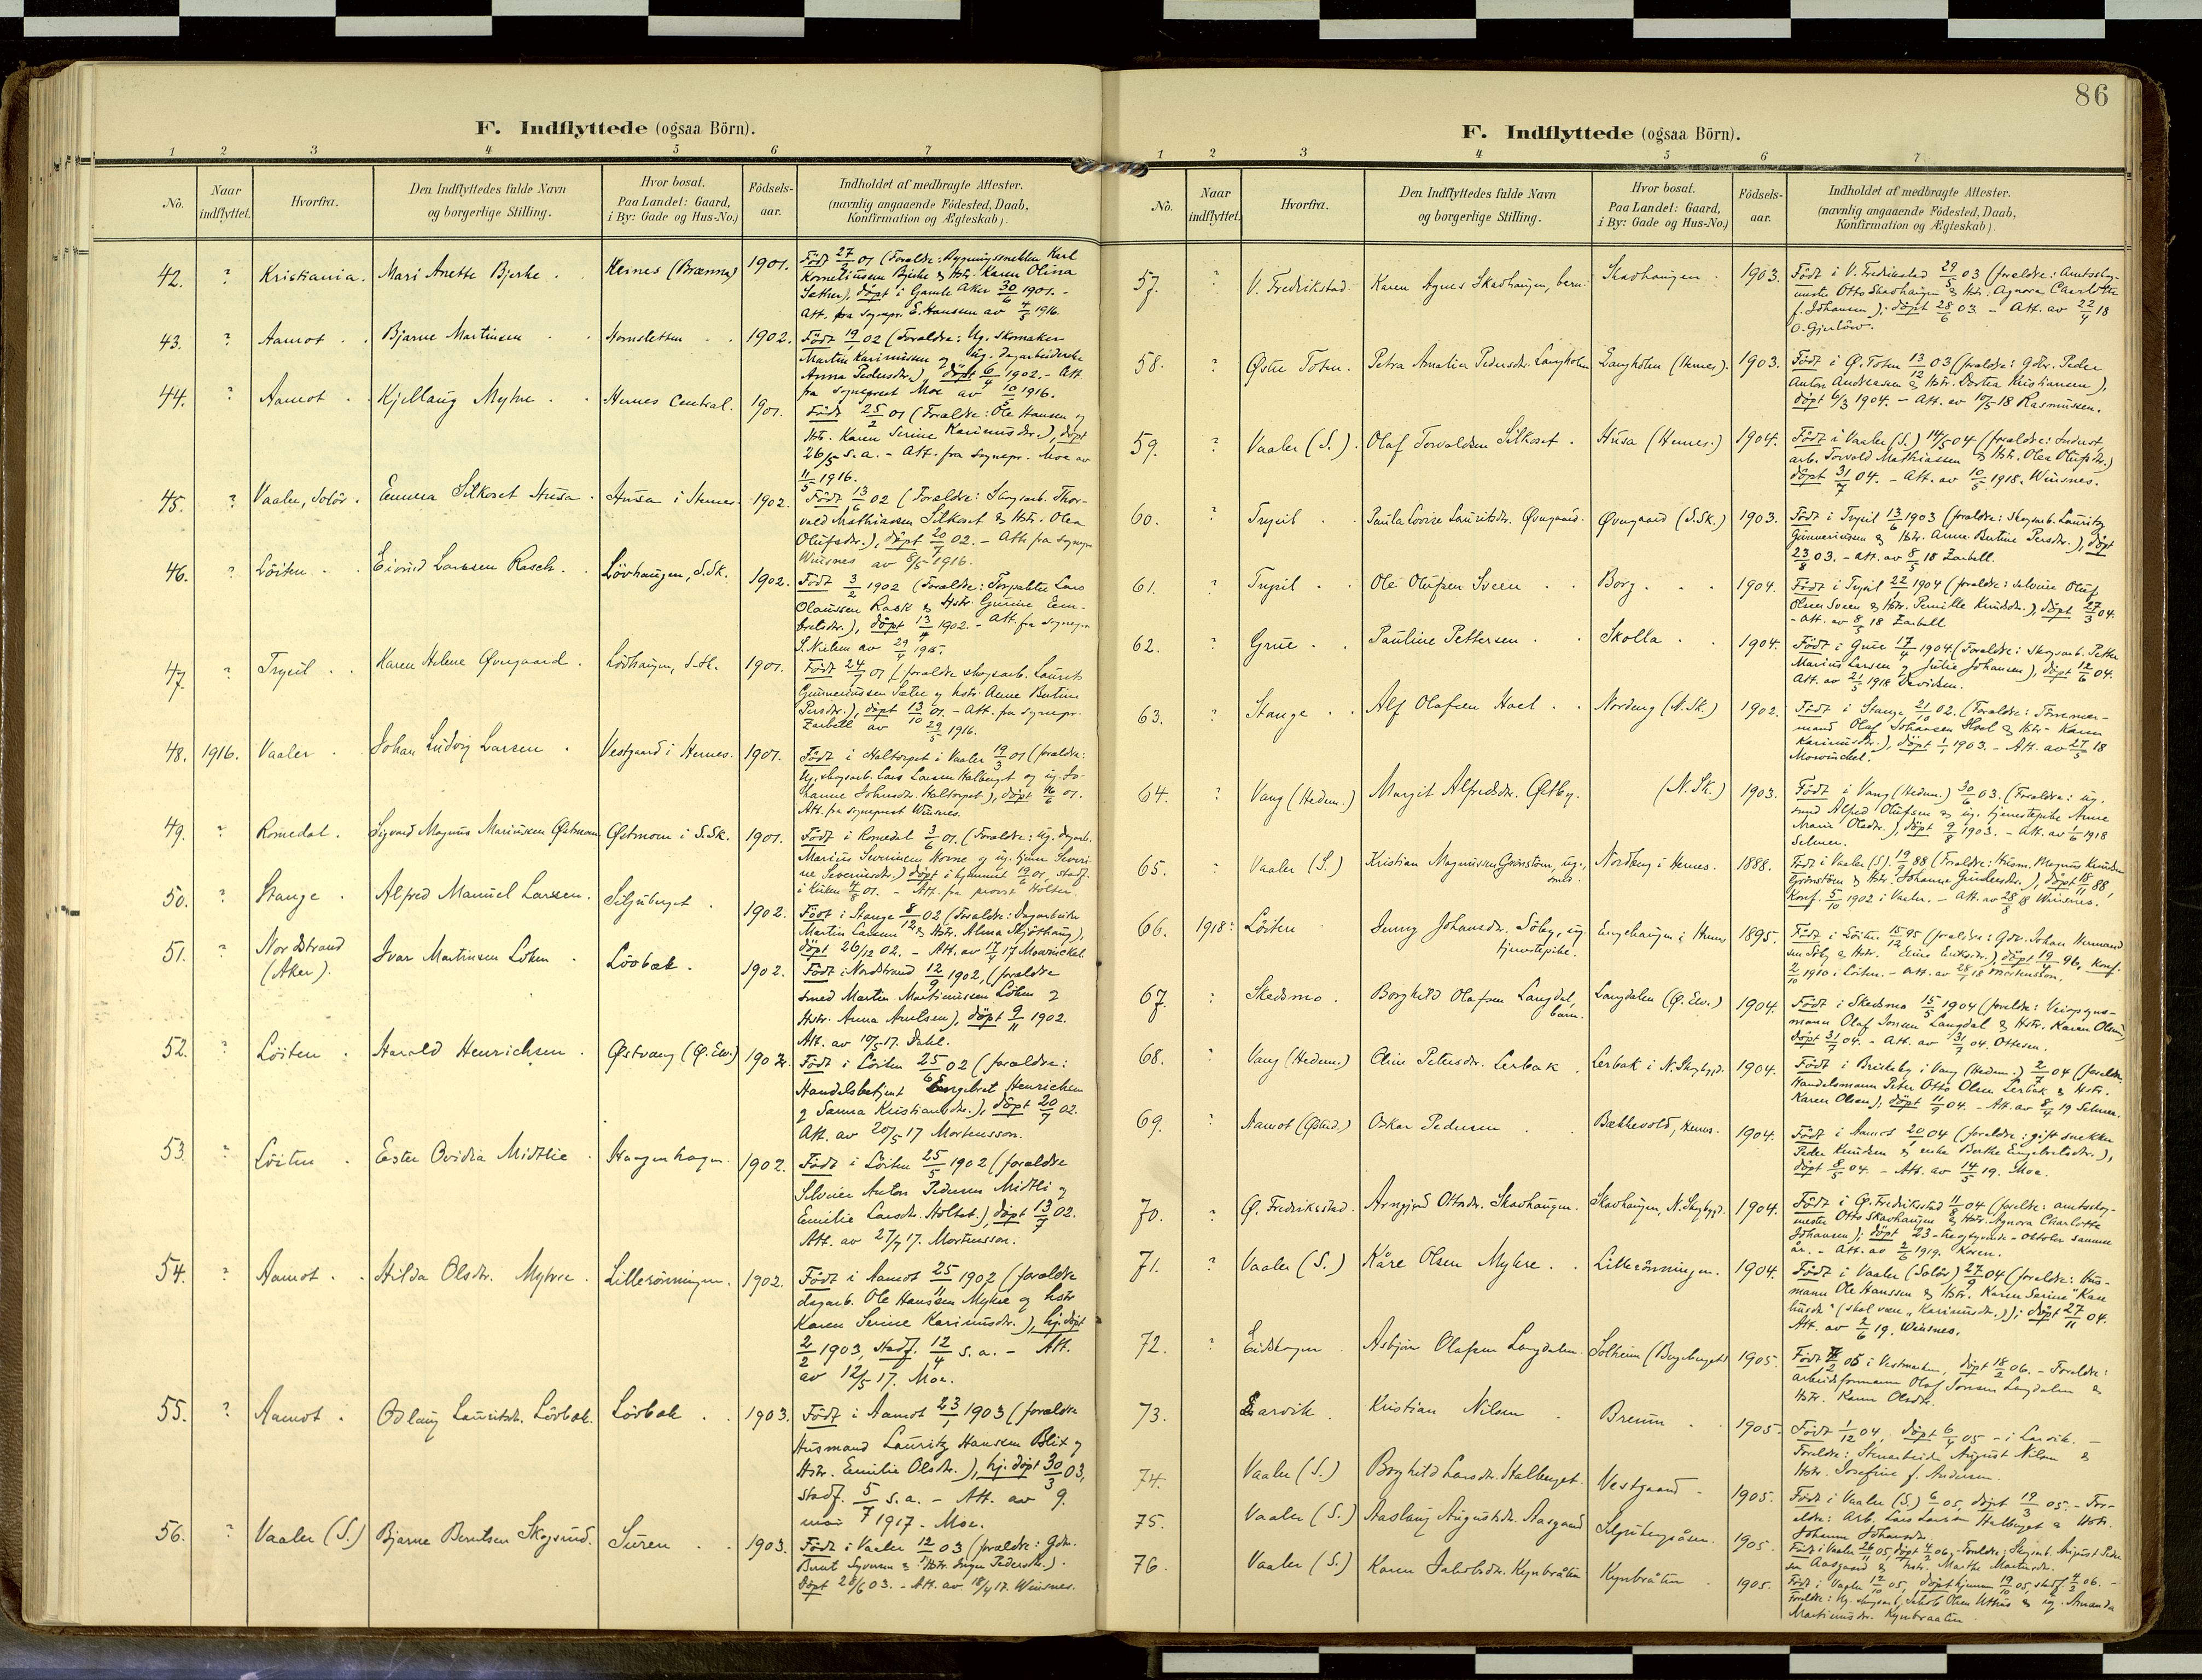 86
F. Indflyttede (ogsaa Börn).
1 2 3 4 5 6 7
No. Naar indflyttet. Hvorfra. Den Indflyttedes fulde Navn og borgerlige Stilling. Hvor bosat. Paa Landet: Gaard, i By: Gade og Hus-No.) Födsels-aar. Indholdet af medbragte Attester. (navnlig angaaende Födested, Daab, Konfirmation og Ægteskab).
42. ? Kristiania. Mari Anette Bjerke. 1901. Født 27/2 01 (Forældre: Bygningssnekker Karl
Korneliussen Bjerke & Hstr. Karen Olina
Sæther), døpt i Gamle Aker 30/6 1901. -
Att. fra sognepr. E. Hanssen av 4/5 1916.
43. ? Aamot. Bjarne Martinsen Hornsletten 1902. Født 19/1 02 (Forældre: Ug. Skomaker
Martin Karinussen og ug. dagarbeiderske
Anna Pedersdr.), døpt 6/4 1902. - Att.
fra sogneprest Moe av 10/5 1916.
44. ? Aamot. Kjellaug Myhre. Hernes Central. 1901. Født 25/2 01 (Forældre: Ole Hansen og
Hstr. Karen Serine Karinusdr.), døpt
26/5 s.a. - Att. fra sognepr. Moe av
11/5 1916.
45. ? Vaaler, Solør. Emma Silkoset Husa. Husa i Hernes. 1902. Født 13/6 02 (Forældre: Skogsarb. Thor-
vald Mathiassen Silkoset & Hstr. Olea
Olufsdr.), døpt 20/7 02. - Att. fra sognepr.
Winsnes av 8/5 1916.
46. ? Löiten. Eivind Larssen Rasch. Lövhaugen, S.Sk. 1902. Født 3/2 1902 (Forældre: Torpelter Lars
Olaussen Rask & Hstr. Gunine Eem-
bretsdr.), døpt 13/4 1902. - Att. fra sognepr.
S. Nielsen av 29/4 1915.
47. ? Trysil. Karen Helene Øvergaard. Lövhaugen, S.Sk. 1901. Født 24/7 01 (forældre skogsarb. Laurits
Gunneriussen Sætre og hstr. Anne Bertine
Persdr.), døpt 13/10 01. - Att. fra sognepr.
Zarbell av 29/5 1916.
48. 1916. Vaaler. Johan Ludvig Larsen. Vestgaard i Hernes. 1901. Født i Haltorpet i Vaaler 19/3 01 (forældre:
Ug. skogsarb. Lars Larsen Halberget og ug. Jo-
hanne Johnsdr. Haltorpet), døpt 16/6 01.
Att. fra sogneprest Winsnes.
49. ? Romedal. Sigvard Magnus Mariussen Østmoen Østmoen i S.Sk. 1901. Født i Romedal 3/6 01. (Forældre: Ug. dagarb.
Marius Severinsen Horne og ug. tjener Severi-
ne Severinsdr.) døpt i hjemmet 19/6 01, stadf.
i kirken 4/8 01. - Att. fra provst Holter.
50. ? Stange. Alfred Manuel Larsen. Siljuberget 1902. Født i Stange 8/12 02 (Forældre: Dagarbeider
Martin Larsen & Hstr. Alma Skjöthaug),
døpt 26/12 02. - Att. av 17/4 17 Mowinckel.
51. ? Nordstrand (Aker). Ivar Martinsen Löken Lövbæk. 1902. Født i Nordstrand 12/9 1902, (forældre
smed Martin Martinussen Löken og
Hstr. Anna Arnelsen), døpt 9/11 1902.
Att. av 10/5 17. Dahl.
52. ? Löiten. Harald Henrichsen. Østvang (Ø. Elv.) 1902. Født i Löiten 25/6 02 (forældre:
Handelsbetjent Engebret Henrichsen
og Sanna Kristiansdr.), døpt 20/7 02.
Att. av 20/5 17 Mortensson.
53. ? Löiten. Ester Ovidia Midtlie. Haugenhagen. 1902. Født i Löiten 25/5 1902 (forældre
Selveier Anton Pedersen Midtli og
Emilie Larsdr. Holtet.), døpt 13/7 02.
Att. av 27/7 17. Mortensson.
54. ? Aamot. Hilda Olsdr. Myhre. Lillerönningen. 1902. Født i Aamot 25/11 1902 (forældre
dagarb. Ole Hanssen Myhre og hstr
Karen Serine Karinusdr.), hj. døpt
2/2 1903, stadf. 12/4 s.a. - Att.
av 12/5 17. Moe.
55. ? Aamot. Odlaug Lauritsdr. Lövbæk. Lövbæk. 1903. Født i Aamot 23/1 1903 (forældre
Husmand Lauritz Hanssen Blix og
Hstr. Emilie Olsdr.), hj. døpt 30/3 03,
stadf. 5/7 s.a. - Att. av 9.
mai 1917. - Moe.
56. ? Vaaler (S.) Bjarne Berntsen Skogsrud. Suren 1903. Født i Vaaler 12/4 03 (forældre: Gdbr.
Bernt Syversen & Hstr. Inger Pedersdr.).
Døpt 28/6 03. - Att. av 18/4 17. Winsnes.
F. Indflyttede (ogsaa Börn).
1 2 3 4 5 6 7
No. Naar indflyttet. Hvorfra. Den Indflyttedes fulde Navn og borgerlige Stilling. Hvor bosat. Paa Landet: Gaard, i By: Gade og Hus-No.) Födsels-aar. Indholdet af medbragte Attester. (navnlig angaaende Födested, Daab, Konfirmation og Ægteskab).
57. ? V. Fredrikstad. Karen Agnes Skavhaugen, barn. Skavhaugen. 1903. Født i V. Fredrikstad 29/5 03 (forældre: Amtsskog-
mester Otto Skavhaugen & Hstr. Agnora Charlotte
f. Johansen); døpt 28/6 03 - Att. av 22/4 18
O. Gjerløw.
58. ? Østre Toten. Petra Amalie Pedersdr. Langholen Langholen (Hernes). 1903. Født i Ø. Toten 13/12 03 (forældre: Gdbr. Peder
Anton Andreassen & Hstr. Dortea Kristiansen),
døpt 6/3 1904. - Att. av 10/5 18 Rasmussen.
59. ? Vaaler (S.). Olaf Torvaldsen Silkoset. Husa (Hernes.) 1904. Født i Vaaler (S.) 14/5 04 (forældre: Industr.
arb. Torvald Mathiassen & Hstr. Olea Olufsdr.)
døpt 31/7 04. - Att. av 10/5 1918. Winsnes.
60. ? Trysil. Paula Lovise Lauritsdr. Øvergaard. Øvergaard (S.Sk.) 1903. Født i Trysil 13/6 1903 (forældre: Skogsarb. Lauritz
Gunneriussen & Hstr. Anne Bertine Persdr.), døpt
23/8 03. - Att. av 8/5 18 Zarbell.
61. ? Trysil. Ole Olufsen Sveen. Borg. 1904. Født i Trysil 22/1 1904 (forældre: selveier Oluf
Olsen Sveen & Hstr. Pernille Knudsdr.), døpt 27/3 04.
- Att. av 8/5 18 Zarbell
62. ? Grue. Pauline Pettersen. Skolla. 1904. Født i Grue 17/4 1904 (Forældre: Skogsarb. Petter
Marius Larsen & Julie Johansen), døpt 12/6 04.
Att. av 21/5 1918 Davidsen.
63. ? Stange. Alf Olafsen Hoel. Nordeng (N.Sk.) 1902. Født i Stange 21/10 02. (Forældre: Tömmer-
mand Olaf Johansen Hoel & Hstr. Karen
Karinusdr.), døpt 1/1 1903. - Att. av 27/5 18
Mowinckel.
64. ? Vang (Hedm.) Margit Alfredsdr. Østby. (N.Sk.) 1903. Født i Vang (Hedm.) 30/6 03. (Forældre: ug.
smed Alfred Olufsen & ug. tjenestepike Anne
Marie Olsdr.), døpt 9/8 1903. - Att. av 1/6 1918
Selmer.
65. ? Vaaler (S.) Kristian Magnussen Grönström, ug., smed. Nordberg i Hernes. 1888. Født i Vaaler (S.) 19/9 88 (Forældre: Husm. Magnus Knudsen
Grönström & Hstr. Johanne Gundersdr.), døpt 18/11 88,
Konf. 5/10 1902 i Vaaler. - Att. av 28/8 18 Winsnes.
66. 1918. Löiten Jenny Johansdr. Söby, ug. tjenestepike. Engehaugen i Hernes 1895. Født i Löiten 15/12 95 (forældre: Gdbr. Johan Hermand-
sen Söby & Hstr. Eline Eriksdr.), døpt 19/4 96, Konf.
2/10 1910 i Löiten. - Att. av 28/9 18 Mortensson.
67. Skedsmo. Borghild Olafsen Langdal, barn. Langdalen (Ø. Elv.) 1904. Født i Skedsmo 15/5 1904 (forældre: Veiopsyns-
mann Olaf Jonsen Langdal & Hstr. Karen Olsen)
døpt 31/7 04. - Att. av 31/7 04. Ottesen.
68. ? Vang (Hedm.) Eline Petersdr. Lerbak. Lerbak i N. Skogbygd. 1904. Født i Briskeby i Vang (Hedm.) 2/7 04 (forældre:
Handelsmann Peter Otto Olsen Lerbak & Hstr.
Karen Olsen), døpt 11/9 04. - Att. av 8/4 19 Selmer.
69. ? Aamot (Østerd.) Oskar Pedersen Bækkevold, Hernes. 1904. Født i Aamot 20/1 04 (forældre: gift snekker
Peder Knudsen & enke Berthe Engebretsdr.),
døpt 8/5 04. - Att. av 14/5 19. Moe.
70. ? Ø. Fredrikstad. Arngjerd Ottosdr. Skavhaugen. Skavhaugen, N. Skogbygd. 1904. Født i Ø. Fredrikstad 11/8 04 (forældre: amtsskog-
mester Otto Skavhaugen & Hstr. Agnora Charlotte
Johansen); døpt 23 - treogtyvende - oktober samme
år. - Att. av 2/6 1919. Koren.
71. ? Vaaler (S.) Kåre Olsen Myhre. Lillerönningen. 1904. Født i Vaaler (Solör) 27/9 04 (forældre: Hus-
mann Ole Hanssen & Hstr. Karen Serine "Kare
liusdr" (skal være "Karinusdr.)); døpt 27/11 04.
Att. av 2/6 19. Winsnes.
72. ? Eidskogen. Asbjörn Olafsen Langdalen. Solheim (Bergeberget) 1905. Født 05 i Vestmarken, døpt 18/2 06. - Forældre:
arbeidsformann Olaf Jonsen Langdalen &
Hstr. Karen Olsdr.
73. Larvik. Kristian Nilsen Breum 1905. Født 1/12 04, døpt 6/4 05 - i Larvik. -
Forældre: Stenarbeider August Nilsen &
Hstr. Josefine f. Andersen.
74. Vaaler (S.) Borghild Larsdr. Halberget. Vestgaard. 1905. Født i Vaaler (S.) 6/1 05, døpt 19/3 05. - For-
ældre: Arb. Lars Larsen Halberget & Hstr.
Johanne Johansdr.
75. Vaaler (S.) Aaslaug Augustsdr. Aasgaard Siljubergsåsen. 1905. Født i Vaaler 26/11 05, døpt 4/2 06. - Forældre: Skogsarb. August Peder
sen Aasgaard & Hstr. Marthe Martinsdr.
76. Vaaler (S.) Karen Jakobsdr. Kynbråten Kynbråten 1905. Født i Vaaler 12/10 05, døpt hjemme 19/10 05, stadf. 4/2 06. -
Forældre: Ug. skogsarb. Jakob Olsen & ug. Amanda
Martinusdr. Kynbraaten.